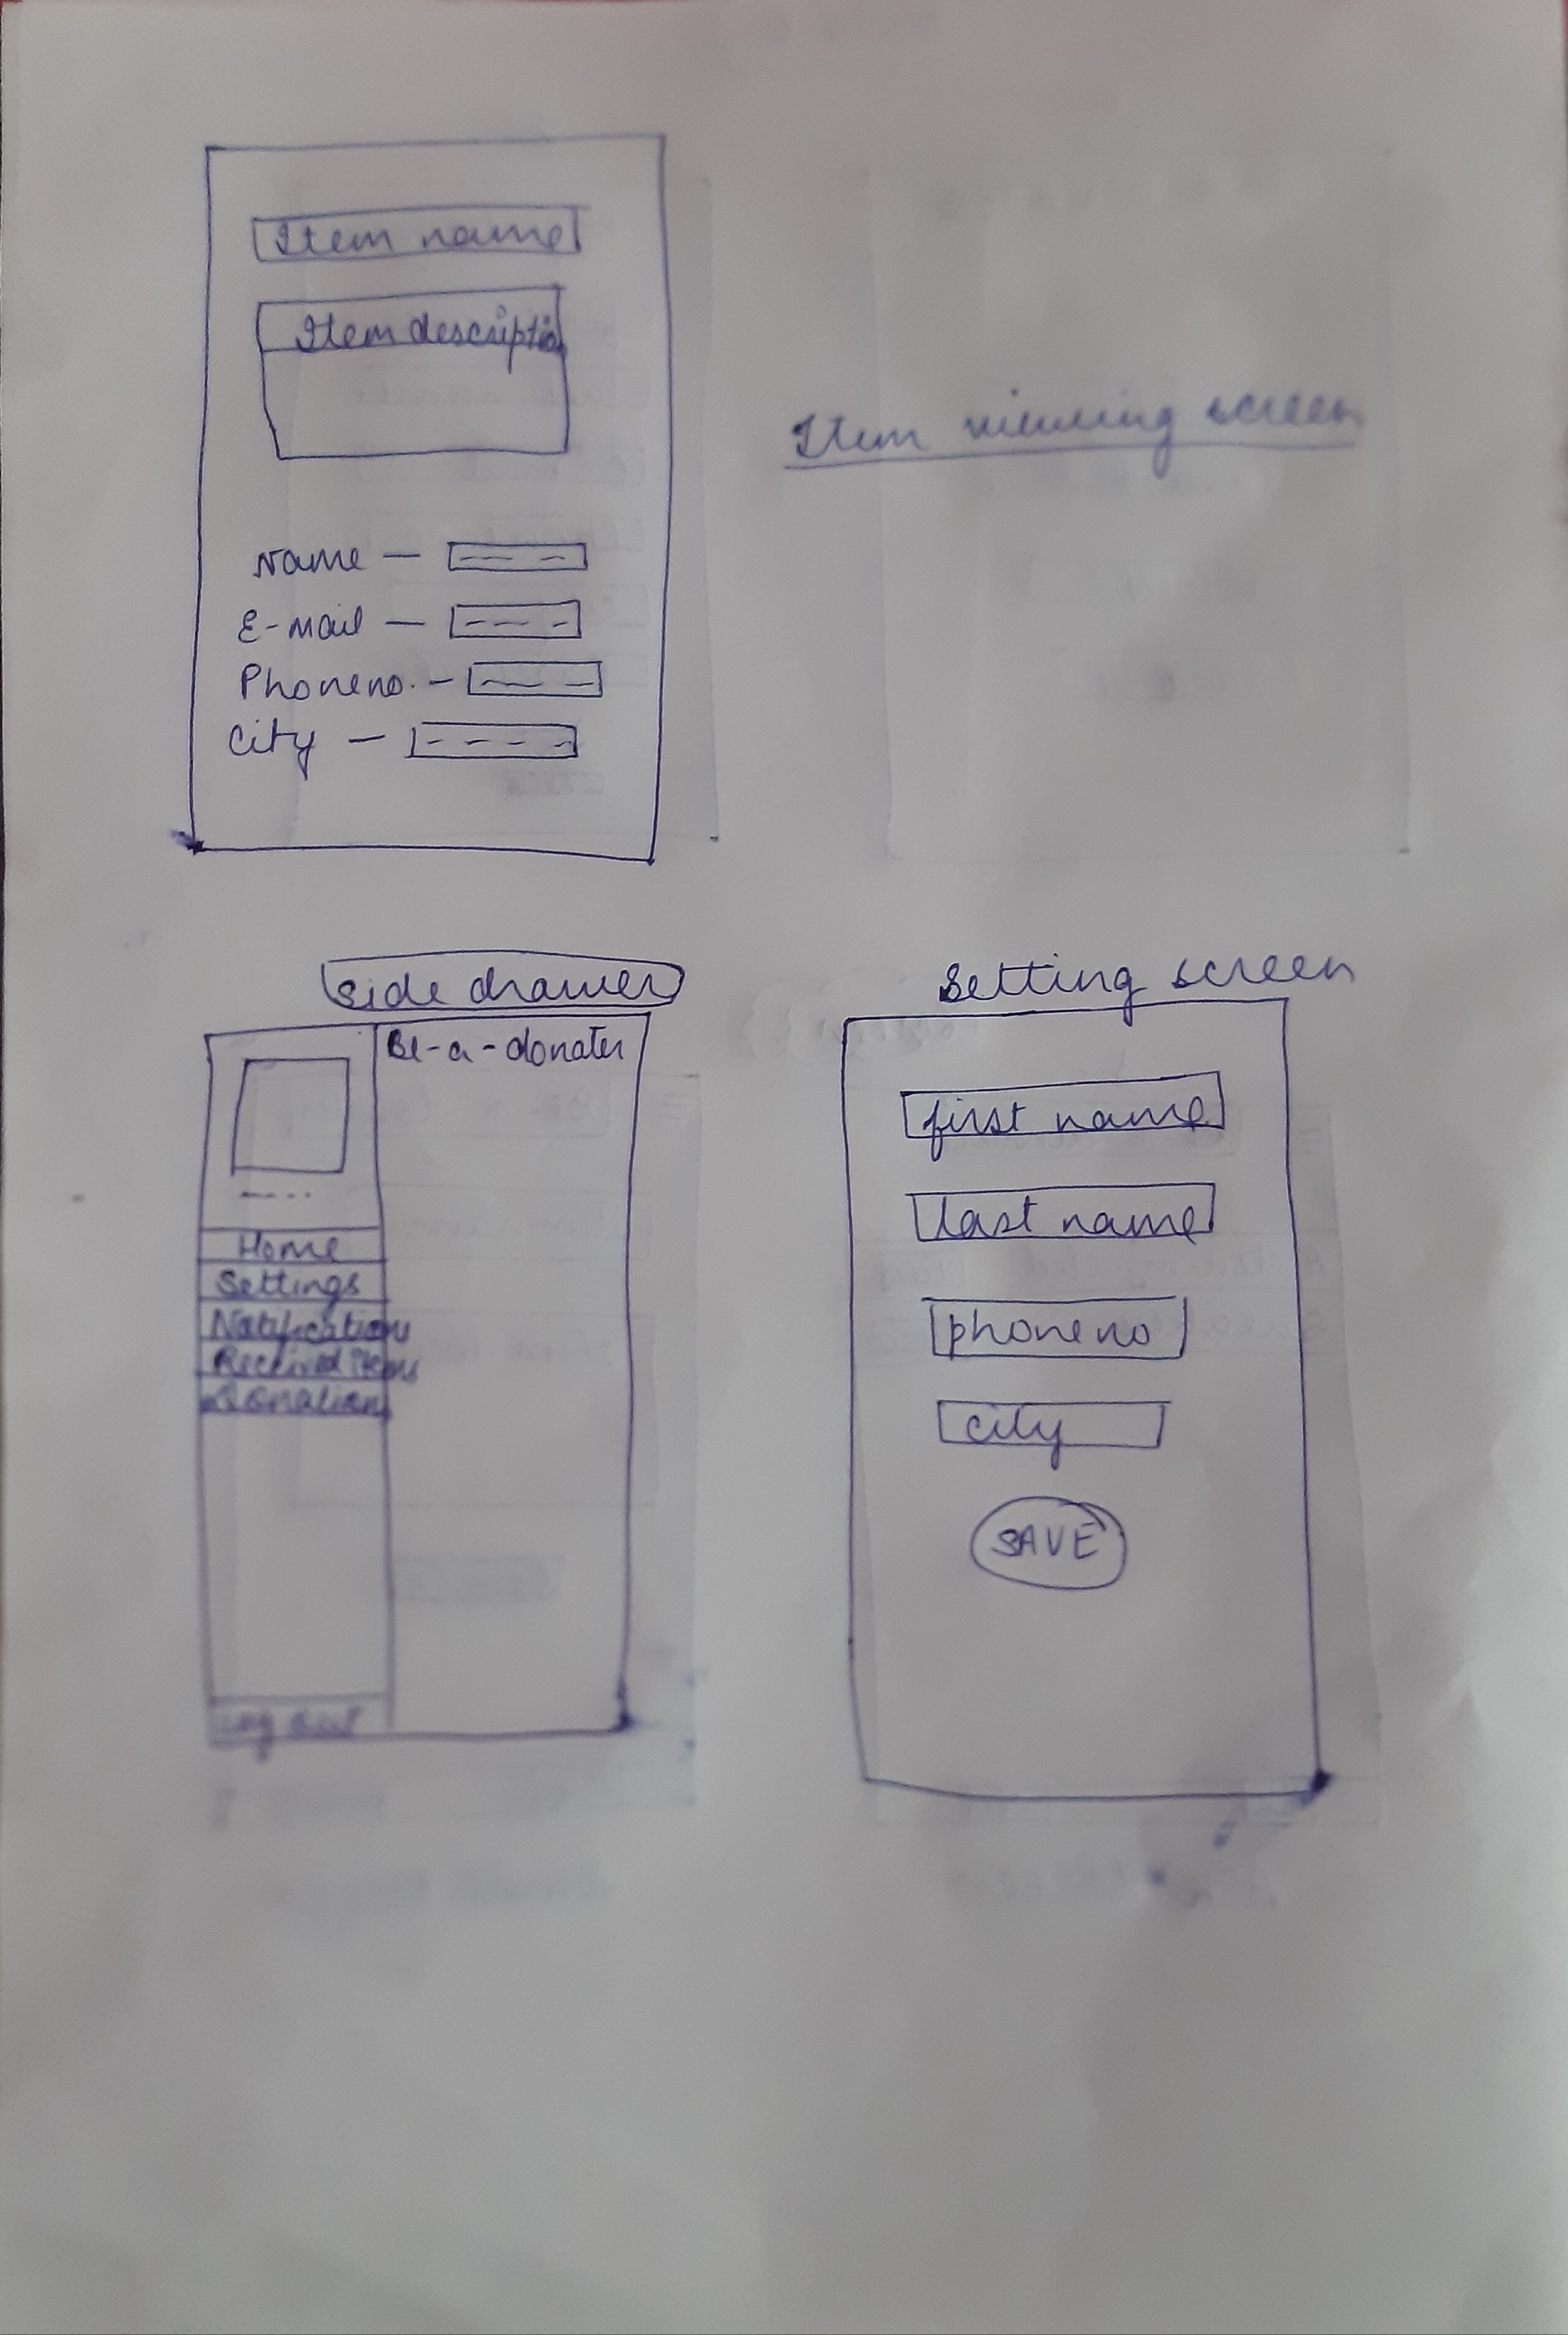 Item name
Item descriptio
Item viewing screen
Name —
E-mail —
Phoneno. -
City —
side drawer
Be-a-donater
Home
Settings
Notifications
Received items
Donation
Log out
Setting screen
first name
last name
phone no
city
SAVE